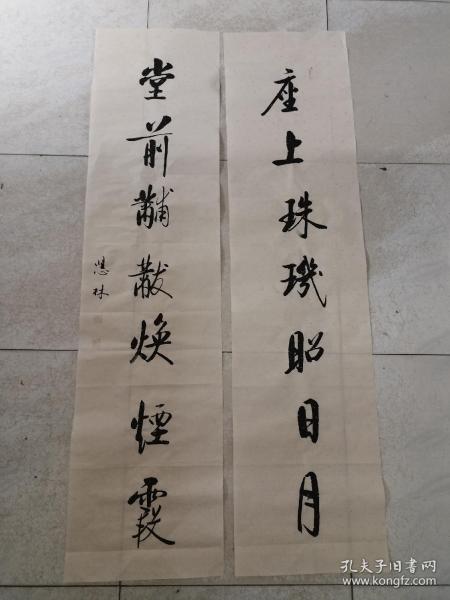 座上珠璣昭日月
堂前黼黻煥煙霞
林
孔夫子旧书网
www.kongfz.com